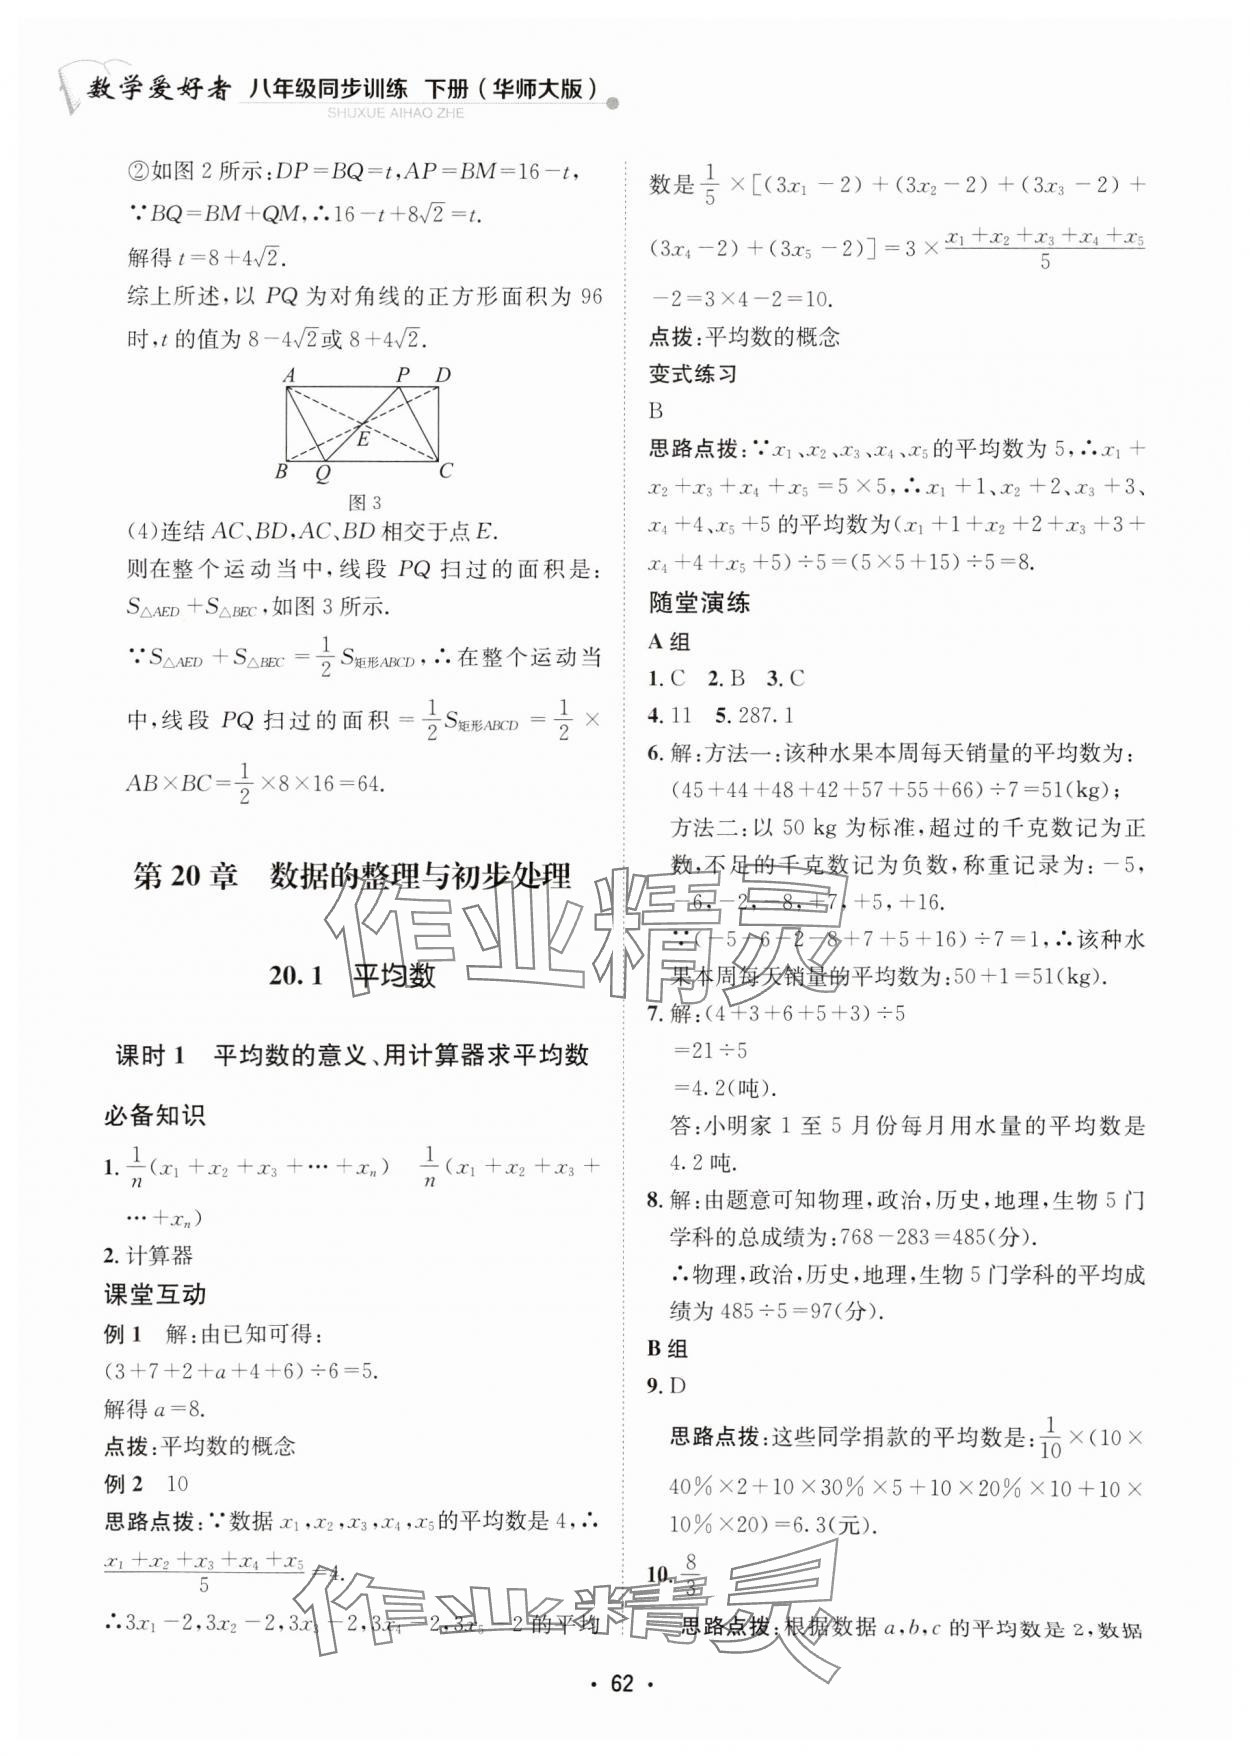 数学爱好者 八年级同步训练 下册(华师大版)
SHUXUE AIHAO ZHE
②如图2所示:DP=BQ=t,AP=BM=16-t,
∵BQ=BM+QM,∴16-t+8√2=t.
解得t=8+4√2.
综上所述,以 PQ 为对角线的正方形面积为 96
时,t的值为8-4√2或8+4√2.
A P D
E
B Q C
图3
(4)连结AC、BD,AC、BD相交于点E.
则在整个运动当中,线段 PQ 扫过的面积是:
S△AED+S△BEC,如图3所示.
∵S△AED+S△BEC=1/2S矩形ABCD,∴在整个运动当
中,线段 PQ 扫过的面积=1/2S矩形ABCD=1/2×
AB×BC=1/2×8×16=64.
第20章 数据的整理与初步处理
20.1 平均数
课时1 平均数的意义、用计算器求平均数
必备知识
1. 1/n(x₁+x₂+x₃+…+xₙ) 1/n(x₁+x₂+x₃+
…+xₙ)
2. 计算器
课堂互动
例1 解:由已知可得:
(3+7+2+a+4+6)÷6=5.
解得a=8.
点拨:平均数的概念
例2 10
思路点拨:∵数据x₁,x₂,x₃,x₄,x₅的平均数是4,∴
(x₁+x₂+x₃+x₄+x₅)/5=4.
∴3x₁-2,3x₂-2,3x₃-2,3x₄-2,3x₅-2的平均
数是1/5×[(3x₁-2)+(3x₂-2)+(3x₃-2)+
(3x₄-2)+(3x₅-2)]=3×(x₁+x₂+x₃+x₄+x₅)/5
-2=3×4-2=10.
点拨:平均数的概念
变式练习
B
思路点拨:∵x₁、x₂、x₃、x₄、x₅的平均数为5,∴x₁+
x₂+x₃+x₄+x₅=5×5,∴x₁+1、x₂+2、x₃+3、
x₄+4、x₅+5的平均数为(x₁+1+x₂+2+x₃+3+
x₄+4+x₅+5)÷5=(5×5+15)÷5=8.
随堂演练
A组
1. C 2. B 3. C
4. 11 5. 287.1
6. 解:方法一:该种水果本周每天销量的平均数为:
(45+44+48+42+57+55+66)÷7=51(kg);
方法二:以50 kg为标准,超过的千克数记为正
数,不足的千克数记为负数,称重记录为:-5,
-6,-2,-8,+7,+5,+16.
∵(-5-6-2-8+7+5+16)÷7=1,∴该种水
果本周每天销量的平均数为:50+1=51(kg).
7. 解:(4+3+6+5+3)÷5
=21÷5
=4.2(吨).
答:小明家1至5月份每月用水量的平均数是
4.2吨.
8. 解:由题意可知物理,政治,历史,地理,生物5门
学科的总成绩为:768-283=485(分).
∴物理,政治,历史,地理,生物5门学科的平均成
绩为485÷5=97(分).
B组
9. D
思路点拨:这些同学捐款的平均数是:1/10×(10×
40%×2+10×30%×5+10×20%×10+10×
10%×20)=6.3(元).
10. 8/3
思路点拨:根据数据a,b,c的平均数是2,数据
· 62 ·
作业精灵
作业精灵